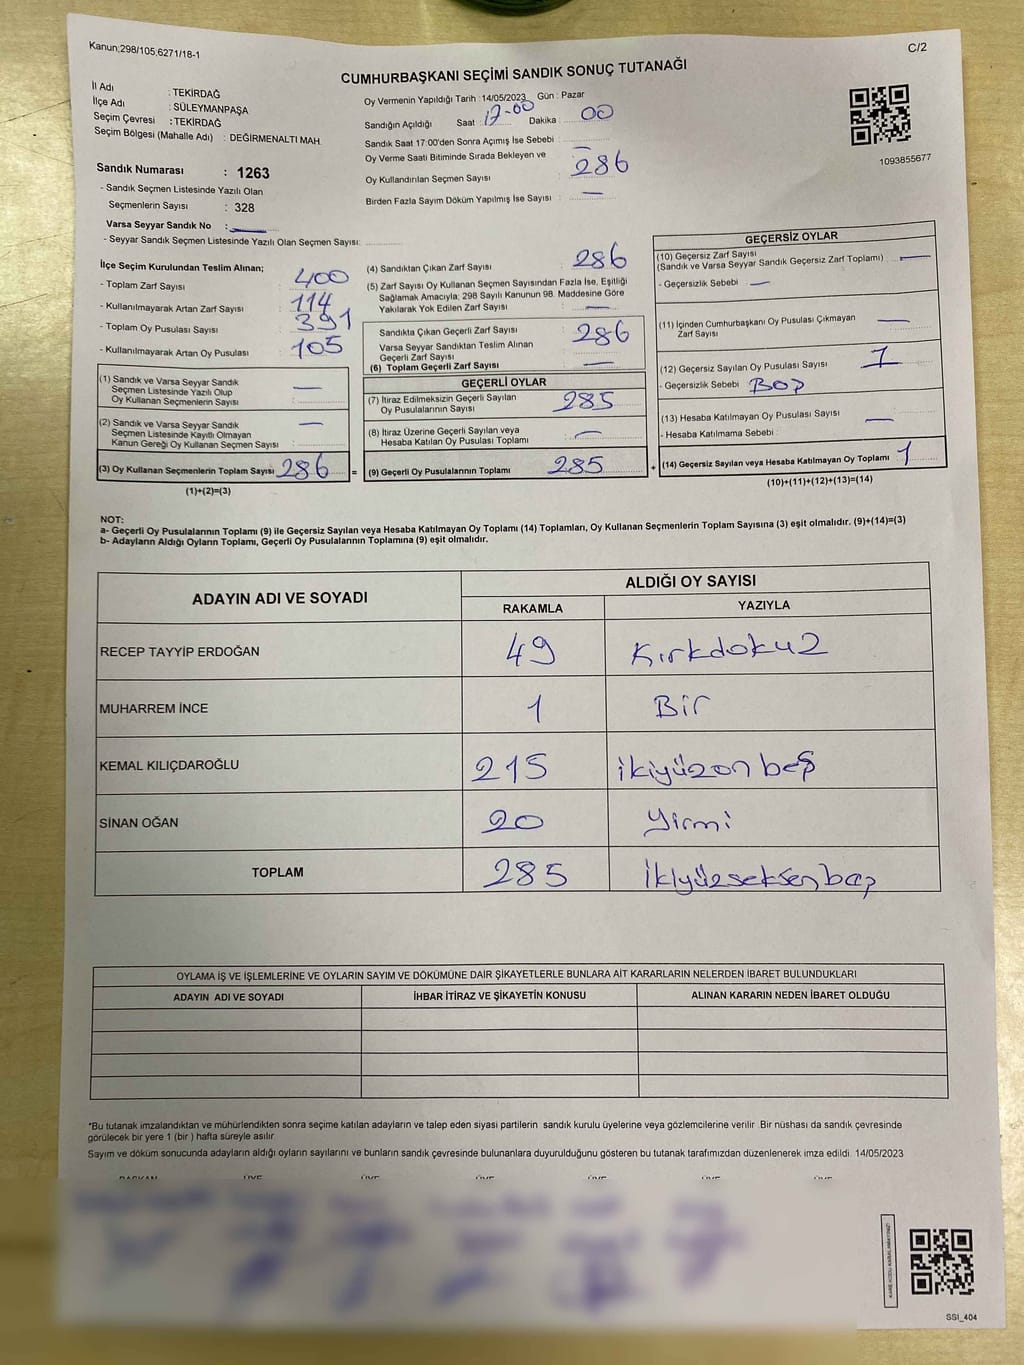 Kanun;298/105;6271/18-1
C/2
CUMHURBAŞKANI SEÇİMİ SANDIK SONUÇ TUTANAĞI
İl Adı : TEKİRDAĞ
İlçe Adı : SÜLEYMANPAŞA
Seçim Çevresi : TEKİRDAĞ
Seçim Bölgesi (Mahalle Adı) : DEĞİRMENALTI MAH.
Oy Vermenin Yapıldığı Tarih :14/05/2023 Gün : Pazar
Sandığın Açıldığı Saat : 17-00 Dakika : 00
Sandık Saat 17:00'den Sonra Açımış İse Sebebi : —
Oy Verme Saati Bitiminde Sırada Bekleyen ve
Oy Kullandırılan Seçmen Sayısı : 286
Birden Fazla Sayım Döküm Yapılmış İse Sayısı : —
1093855677
Sandık Numarası : 1263
- Sandık Seçmen Listesinde Yazılı Olan
Seçmenlerin Sayısı : 328
Varsa Seyyar Sandık No : —
- Seyyar Sandık Seçmen Listesinde Yazılı Olan Seçmen Sayısı:
İlçe Seçim Kurulundan Teslim Alınan;
- Toplam Zarf Sayısı : 400
- Kullanılmayarak Artan Zarf Sayısı : 114
- Toplam Oy Pusulası Sayısı : 391
- Kullanılmayarak Artan Oy Pusulası : 105
(1) Sandık ve Varsa Seyyar Sandık
Seçmen Listesinde Yazılı Olup
Oy Kullanan Seçmenlerin Sayısı : —
(2) Sandık ve Varsa Seyyar Sandık
Seçmen Listesinde Kayıtlı Olmayan
Kanun Gereği Oy Kullanan Seçmen Sayısı : —
(3) Oy Kullanan Seçmenlerin Toplam Sayısı : 286
(1)+(2)=(3)
(4) Sandıktan Çıkan Zarf Sayısı : 286
(5) Zarf Sayısı Oy Kullanan Seçmen Sayısından Fazla İse, Eşitliği
Sağlamak Amacıyla; 298 Sayılı Kanunun 98. Maddesine Göre
Yakılarak Yok Edilen Zarf Sayısı : —
Sandıkta Çıkan Geçerli Zarf Sayısı : 286
Varsa Seyyar Sandıktan Teslim Alınan
Geçerli Zarf Sayısı :
(6) Toplam Geçerli Zarf Sayısı : —
GEÇERLİ OYLAR
(7) İtiraz Edilmeksizin Geçerli Sayılan
Oy Pusulalarının Sayısı : 285
(8) İtiraz Üzerine Geçerli Sayılan veya
Hesaba Katılan Oy Pusulası Toplamı : —
= (9) Geçerli Oy Pusulalarının Toplamı : 285
GEÇERSİZ OYLAR
(10) Geçersiz Zarf Sayısı
(Sandık ve Varsa Seyyar Sandık Geçersiz Zarf Toplamı) : —
- Geçersizlik Sebebi : —
(11) İçinden Cumhurbaşkanı Oy Pusulası Çıkmayan
Zarf Sayısı : —
(12) Geçersiz Sayılan Oy Pusulası Sayısı : 1
- Geçersizlik Sebebi : Boş
(13) Hesaba Katılmayan Oy Pusulası Sayısı : —
- Hesaba Katılmama Sebebi :
+ (14) Geçersiz Sayılan veya Hesaba Katılmayan Oy Toplamı : 1
(10)+(11)+(12)+(13)=(14)
NOT:
a- Geçerli Oy Pusulalarının Toplamı (9) ile Geçersiz Sayılan veya Hesaba Katılmayan Oy Toplamı (14) Toplamları, Oy Kullanan Seçmenlerin Toplam Sayısına (3) eşit olmalıdır. (9)+(14)=(3)
b- Adayların Aldığı Oyların Toplamı, Geçerli Oy Pusulalarının Toplamına (9) eşit olmalıdır.
ADAYIN ADI VE SOYADI
ALDIĞI OY SAYISI
RAKAMLA YAZIYLA
RECEP TAYYİP ERDOĞAN 49 Kırkdokuz
MUHARREM İNCE 1 Bir
KEMAL KILIÇDAROĞLU 215 ikiyüzon beş
SİNAN OĞAN 20 Yirmi
TOPLAM 285 İkiyüzseksen beş
OYLAMA İŞ VE İŞLEMLERİNE VE OYLARIN SAYIM VE DÖKÜMÜNE DAİR ŞİKAYETLERLE BUNLARA AİT KARARLARIN NELERDEN İBARET BULUNDUKLARI
ADAYIN ADI VE SOYADI İHBAR İTİRAZ VE ŞİKAYETİN KONUSU ALINAN KARARIN NEDEN İBARET OLDUĞU
*Bu tutanak imzalandıktan ve mühürlendikten sonra seçime katılan adayların ve talep eden siyasi partilerin sandık kurulu üyelerine veya gözlemcilerine verilir. Bir nüshası da sandık çevresinde
görülecek bir yere 1 (bir ) hafta süreyle asılır.
Sayım ve döküm sonucunda adayların aldığı oyların sayılarını ve bunların sandık çevresinde bulunanlara duyurulduğunu gösteren bu tutanak tarafımızdan düzenlenerek imza edildi. 14/05/2023
BAŞKAN ÜYE ÜYE ÜYE ÜYE ÜYE ÜYE
SSI_404